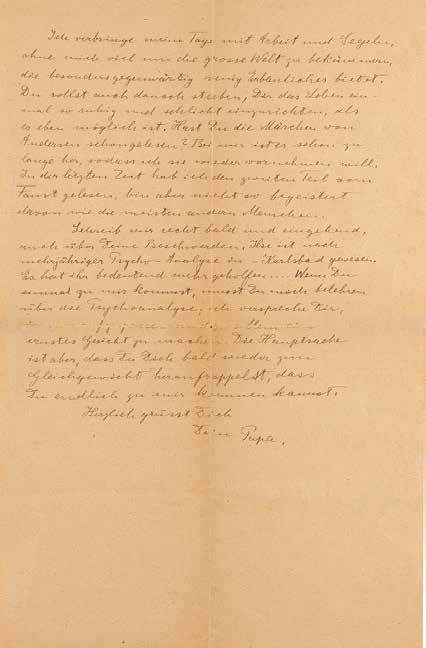 Ich verbringe meine Tage mit Arbeit und Segeln,
ohne mich viel um die grosse Welt zu bekümmern,
die besonders gegenwärtig wenig Erbauliches bietet.
Du sollst auch danach streben, Dir das Leben ein-
mal so ruhig und schlicht einzurichten, als
es eben möglich ist. Hast Du die Märchen von
Andersen schon gelesen? Bei mir ist es schon zu
lange her, sodass ich sie wieder vornehmen will.
In der letzten Zeit hab ich den zweiten Teil vom
Faust gelesen, bin aber nicht so begeistert
davon wie die meisten andern Menschen.
Schreib mir recht bald und eingehend,
auch über Deine Beschwerden. Ilse ist nach
mehrjähriger Psycho-Analyse in - Karlsbad gewesen.
Es hat ihr bedeutend mehr geholfen... Wenn Du
einmal zu mir kommst, musst Du mich belehren
über die Psychoanalyse; ich verspreche Dir,
ernstes Gesicht zu machen. Die Hauptsache
ist aber, dass Du Dich bald wieder zum
Gleichgewicht heraufrappelst, dass
Du endlich zu mir kommen kannst.
Herzlich grüsst Dich
Dein Papa.